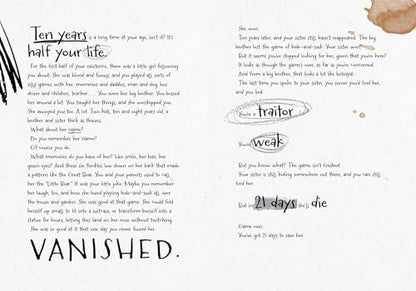 Ten years is a long time at your age, isn't it? It's
half your life.
For the first half of your existence, there was a little girl following
you about. She was blond and funny, and you played all sorts of
silly games with her: mommies and daddies, man and dog, bus
driver and children, teacher... You were her big brother. You bossed
her around a bit. You taught her things, and she worshipped you.
She annoyed you a lot. Two kids, ten and eight years old, a
brother and sister thick as thieves.
What about her name?
Do you remember her name?
Of course you do.
What memories do you have of her? Her smile, her hair, her
green eyes? And those six freckles low down on her back that made
a pattern like the Great Bear. You and your parents used to call
her the "Little Bear." It was your little joke. Maybe you remember
her laugh, too, and how she loved playing hide-and-seek all over
the house and garden. She was good at that game. She could fold
herself up small, to fit into a suitcase, or transform herself into a
statue for hours, letting flies land on her nose without twitching.
She was so good at it that one day you never found her.
VANISHED.
She won.
Ten years later, and your sister still hasn't reappeared. The big
brother lost the game of hide-and-seek. Your sister won.
But it seems you've stopped looking for her, given that you're here?
It looks as though the game's over, as far as you're concerned.
And from a big brother, that looks a lot like betrayal.
The last time you spoke to your sister, you swore you'd find her,
and you lied.
You're a traitor
You're weak
But you know what? The game isn't finished.
Your sister is still hiding somewhere out there, and you can still
find her.
But in 21 days she'll die
Game over.
You've got 21 days to save her.